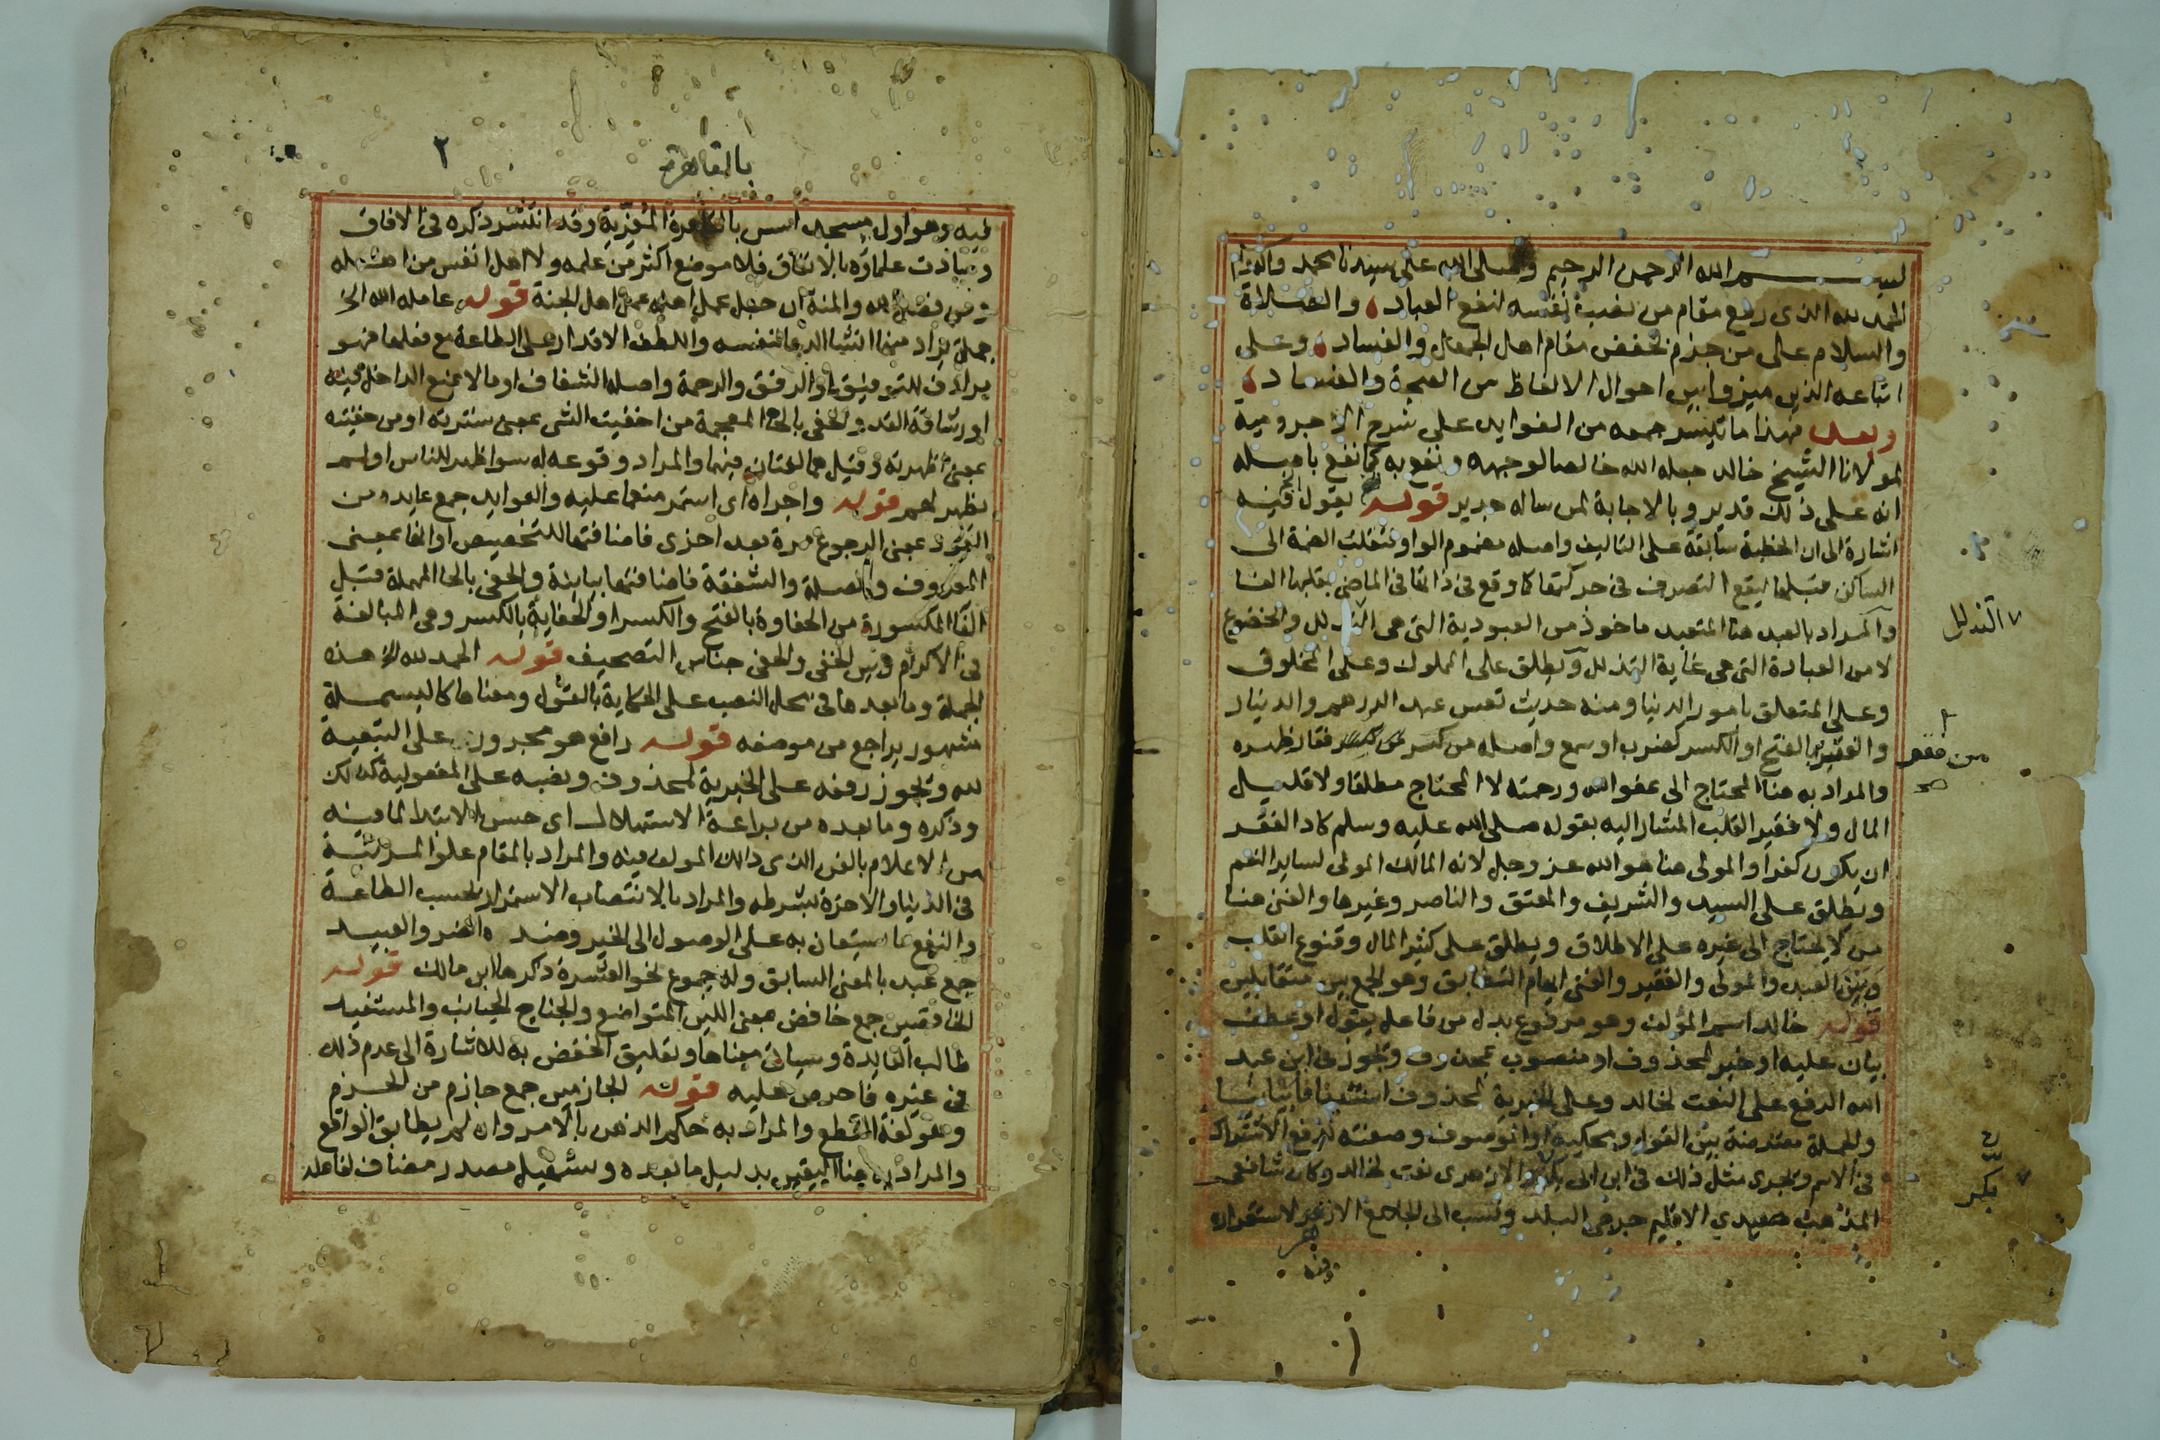 بســـــم الله الرحمن الرحيم وصلى الله على سيدنا محمد وآله
الحمد لله الذى رفع مقام من نصب نفسه لنفع العباد والصلاة
والسلام على من جزم بخفض مقام اهل الجهل والفساد وعلى
اتباعه الذين ميزوا بين احوال الالفاظ من الصحة والفساد
وبعد فهذا ما تيسر جمعه من الفوايد على شرح الاجرومية
لمولانا الشيخ خالد جعله الله خالصا لوجهه ونفع به كما نفع باصله
انه على ذلك قدير وبالاجابة لمن ساله جدير قوله يقول فيه
اشارة الى ان الخطبة سابقة على التاليف واصله مضموم الواو فنقلت الضمة الى
الساكن قبلها ليقع التصرف فى حركتها كما وقع فى ذاتها فى الماضى بقلبها الفا
والمراد بالعبد هنا المتعبد ماخوذ من العبودية التى هى التذلل والخضوع
التذلل
لا من العبادة التى هى غاية التذلل ويطلق على المملوك وعلى المخلوق
وعلى المتعلق بامور الدنيا ومنه حديث تعس عبد الدرهم والدينار
والفقير بالفتح او الكسر كضرب او سمع واصله من كسر فقار ظهره
من فقر
صح
والمراد به هنا المحتاج الى عفو الله ورحمته لا المحتاج مطلقا ولا قليل
المال ولا فقير القلب المشار اليه بقوله صلى الله عليه وسلم كاد الفقر
ان يكون كفرا والمولى هنا هو الله عز وجل لانه المالك المولى لساير النعم
ويطلق على السيد والشريف والمعتق والناصر وغيرها والغنى هنا
من لا يحتاج الى غيره على الاطلاق ويطلق على كثير المال وقنوع القلب
وبين العبد والمولى والفقير والغنى ايهام التطابق وهو الجمع بين متقابلين
قوله خالد اسم المؤلف وهو مرفوع بدل من فاعل يقول او عطف
بيان عليه او خبر لمحذوف او منصوب بمحذوف وتجوز فى ابن عبد
الله الرفع على النعت لخالد وعلى الخبرية لمحذوف استئنافا بيانيا
والجملة معترضة بين القول ومحكيه او الموصوف وصفته لرفع الاشتراك
فى الاسم ويجرى مثل ذلك فى ابن ابى بكر الازهرى نعت لخالد وكان شافعى
بكر
المذهب صعيدي الاقليم جرجى البلد ونسب الى الجامع الازهر لاستقراره
بالقاهرة
٢
فيه وهو اول مسجد اسس بالقاهرة المعزية وقد انتشر ذكره فى الافاق
علماؤه بالاتفاق فلا موضع اكثر من علمه ولا اهل انفس من اهله
ومن فضل الله والمنة ان جعل عمل اهله عمل اهل الجنة قوله عامله الله الخ
جملة يراد منها انشا الدعا لنفسه واللطف الاقدار على الطاعة مع فعلها فهو
مرادف للتوفيق او الرفق والرحمة واصله الشفاف او ما لا يمنع الداخل فيه
او رشاقة القد والخفى بالخا المعجمة من اخفيت الشى بمعنى سترته او من خفيته
بمعنى اظهرته وقيل هما لغتان فيهما والمراد وقوعه له سوا ظهر للناس اولم
يظهر لهم قوله واجراه اى استمر منعما عليه والعوايد جمع عايده من
العود بمعنى الرجوع مرة بعد اخرى فاضافتها للتخصيص او انها بمعنى
المعروف والصلة والشفقة فاضافتها بيانية والحفى بالحا المهملة قبل
الفا المكسورة من الحفاوة بالفتح والكسر او الحفاية بالكسر وهى المبالغة
فى الاكرام وبين الخفى والحفى جناس التصحيف قوله الحمد لله الخ هذه
الجملة وما بعدها فى محل النصب على الحكاية بالقول ومعناها كالبسملة
مشهور يراجع من موضعه قوله رافع هو مجرور على التبعية
لله وتجوز رفعه على الخبرية لمحذوف ونصبه على المفعولية كذلك
وذكره وما بعده من براعة الاستهلال اى حسن الابتدا لما فيه
من الاعلام بالفن الذى ذلك المولف فيه والمراد بالمقام علو المرتبة
فى الدنيا والاخرة بشرطه والمراد بالانتصاب الاستمرار بحسب الطاعة
والنفع ما يستعان به على الوصول الى الخير وضده الضر والعبيد
جمع عبد بالمعنى السابق وله جموع نحو العشرة ذكرها ابن مالك قوله
الخافضين جمع خافض بمعنى اللين المتواضع والجناح الجانب والمستفيد
طالب الفايدة وسياتى معناها وتعليق الخفض به للاشارة الى عدم ذلك
فى غيره فاحرص عليه قوله الجازمين جمع جازم من الجزم
وهو لغة القطع والمراد به حكم الذهن بالامر وان لم يطابق الواقع
والمراد به هنا اليقين بدليل ما بعده وتسهيل مصدر مضاف لفاعله